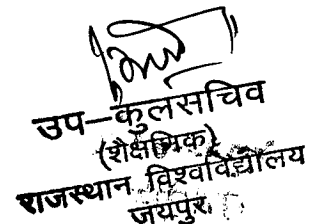 उप–कुलसचिव
(शैक्षणिक)
राजस्थान विश्वविद्यालय
जयपुर